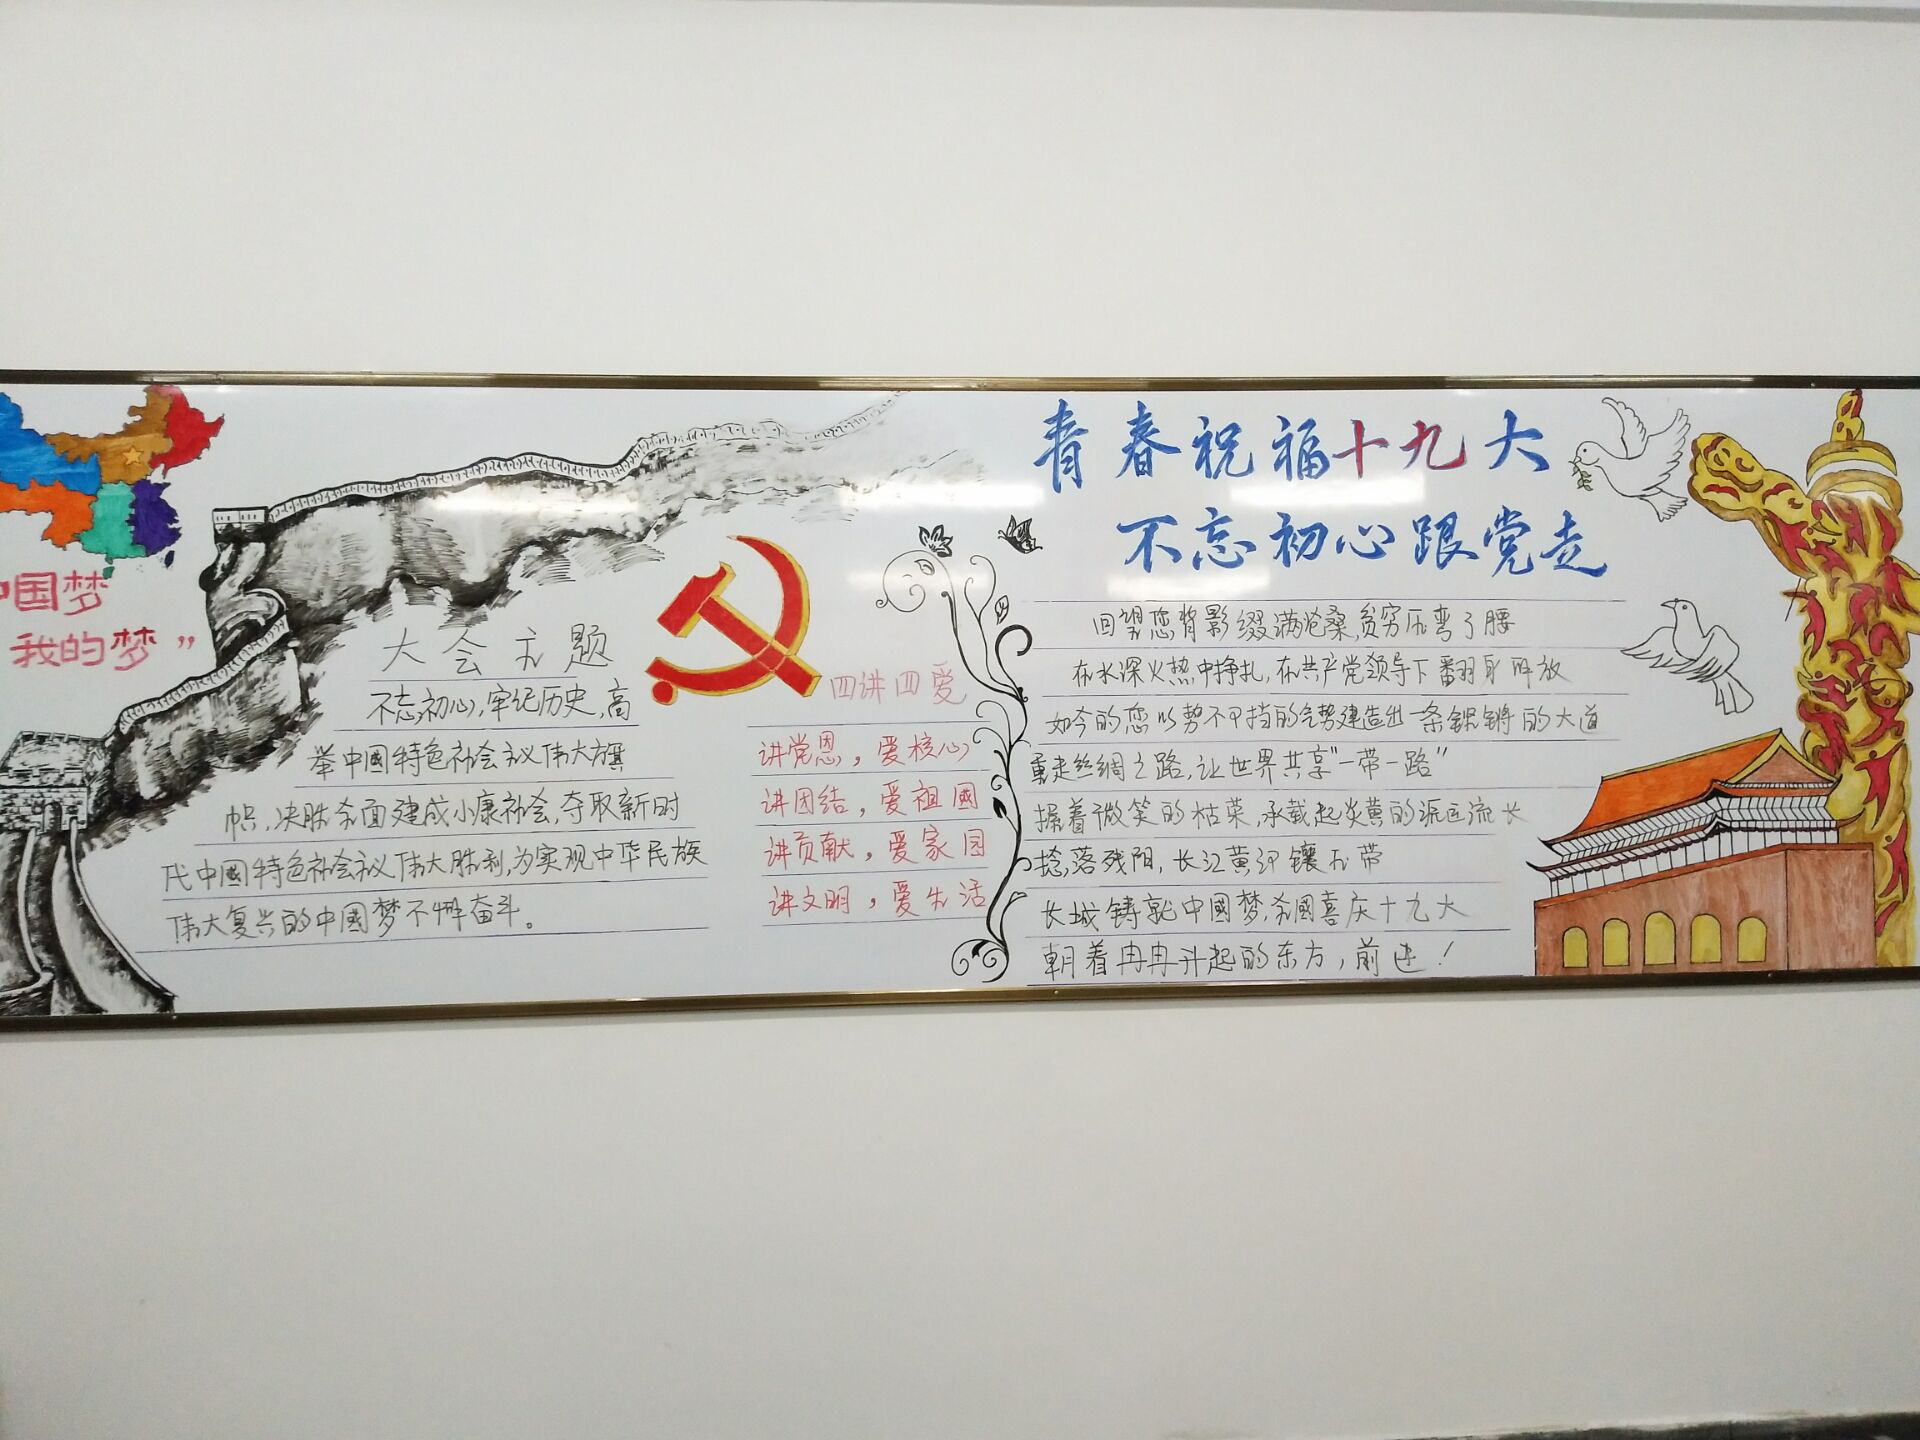 国梦
我的梦”
大会主题
不忘初心,牢记历史,高
举中國特色社会主义伟大旗
帜,决胜全面建成小康社会,夺取新时
代中國特色社会主义伟大胜利,为实现中华民族
伟大复兴的中國梦不懈奋斗。
四讲四爱
讲党恩，爱核心
讲团结，爱祖國
讲贡献，爱家园
讲文明，爱生活
青春祝福十九大
不忘初心跟党走
回望您背影缀满沧桑,贫穷压弯了腰
在水深火热中挣扎,在共产党领导下翻身解放
如今的您以势不可挡的气势建造出一条铿锵的大道
重走丝绸之路,让世界共享"一带一路"
握着微笑的枯荣,承载起炎黄的源远流长
捻落残阳,长江黄河镶玉带
长城铸就中國梦,全國喜庆十九大
朝着冉冉升起的东方,前进!